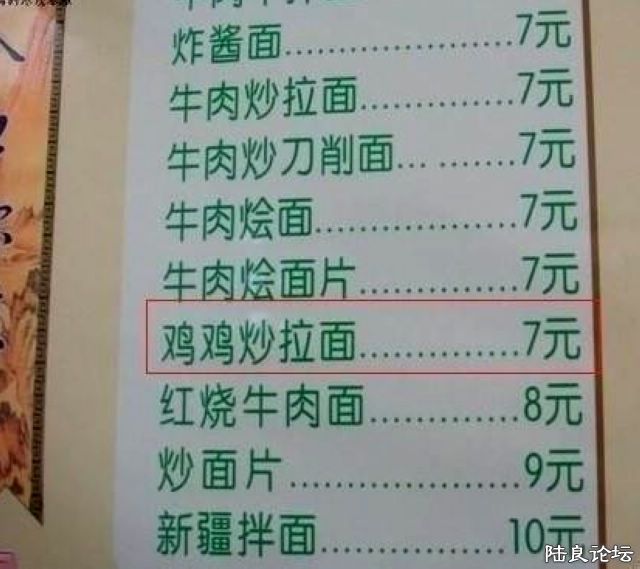 炸酱面..................7元
牛肉炒拉面.............7元
牛肉炒刀削面... .......7元
牛肉烩面................7元
牛肉烩面片.............7元
鸡鸡炒拉面.............7元
红烧牛肉面.............8元
炒面片...................9元
新疆拌面...............10元
陆良论坛